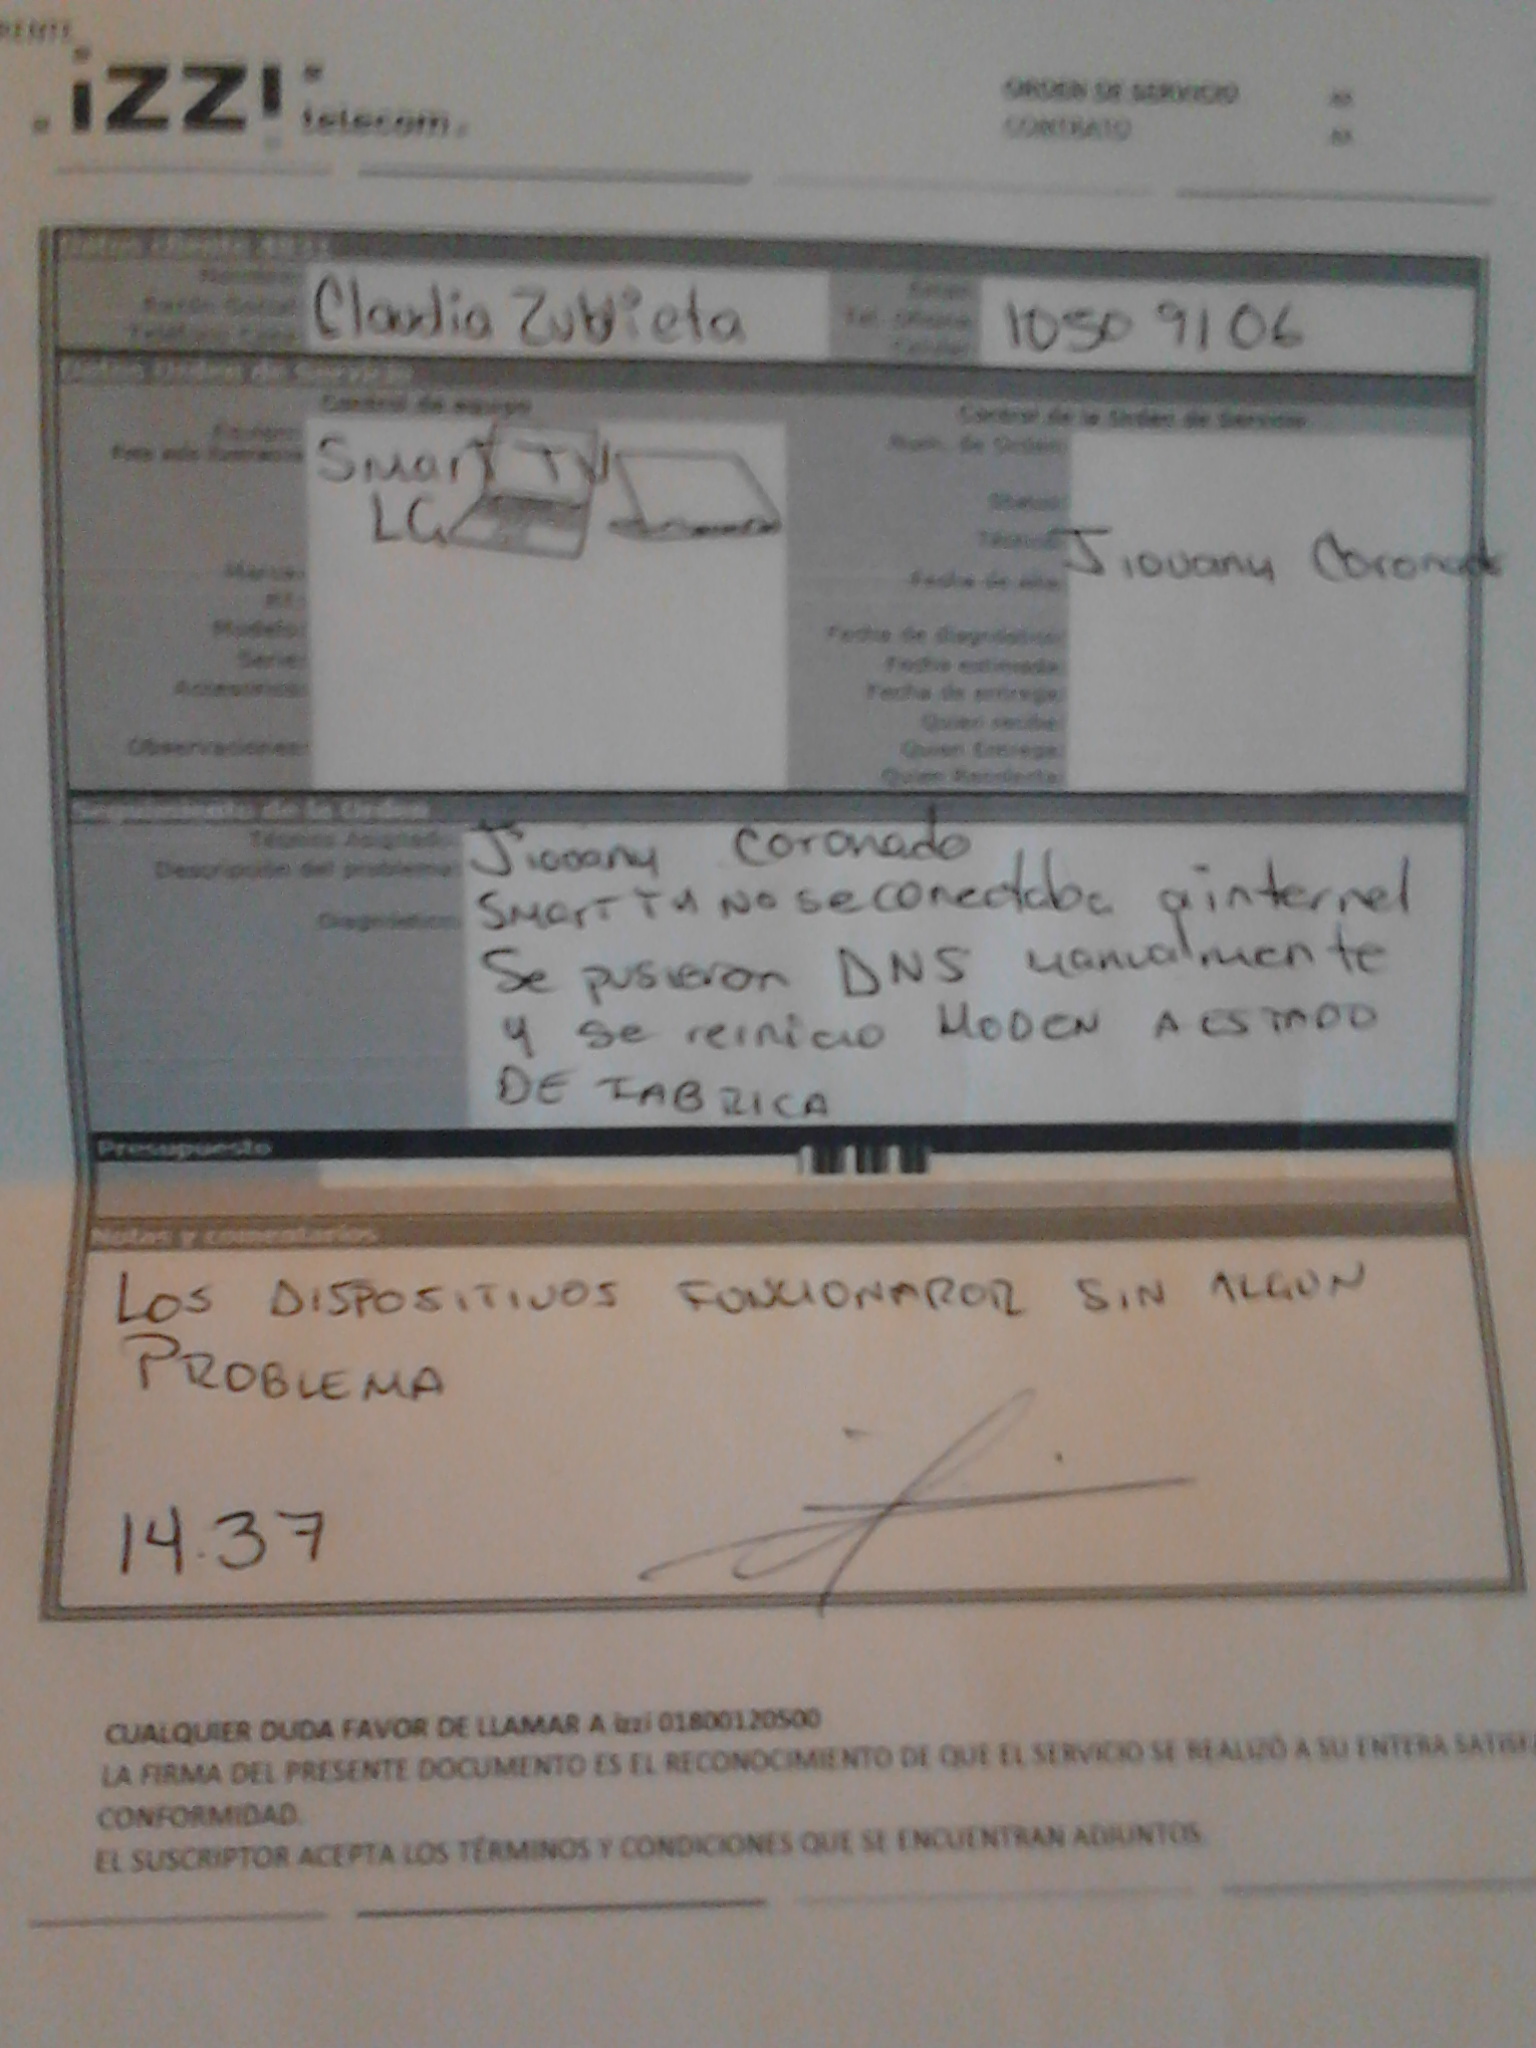 izzi telecom
ORDEN DE SERVICIO
CONTRATO
Datos cliente
Nombre:
Razón Social:
Teléfono Casa:
Claudia Zubieta
Tel. Oficina
Celular
1050 9106
Datos Orden de Servicio
Control de equipo
Equipo:
Smart TV
LG
Marca:
Modelo:
Serie:
Accesorios:
Observaciones:
Control de la Orden de Servicio
Num. de Orden:
Status:
Técnico:
Jiovany Coronado
Fecha de alta:
Fecha de diagnóstico:
Fecha estimada:
Fecha de entrega:
Quien recibe:
Quien Entrega:
Quien Recolecta:
Seguimiento de la Orden
Técnico Asignado:
Jiovany Coronado
Descripción del problema:
Smart TV No se conectaba a internet
Diagnóstico:
Se pusieron DNS manualmente
y se reinicio MODEN A ESTADO
DE FABRICA
Presupuesto
Notas y comentarios
LOS DISPOSITIVOS FUNCIONAROR SIN ALGUN
PROBLEMA
14.37
CUALQUIER DUDA FAVOR DE LLAMAR A izzi 01800120500
LA FIRMA DEL PRESENTE DOCUMENTO ES EL RECONOCIMIENTO DE QUE EL SERVICIO SE REALIZÓ A SU ENTERA
CONFORMIDAD.
EL SUSCRIPTOR ACEPTA LOS TÉRMINOS Y CONDICIONES QUE SE ENCUENTRAN ADJUNTOS.